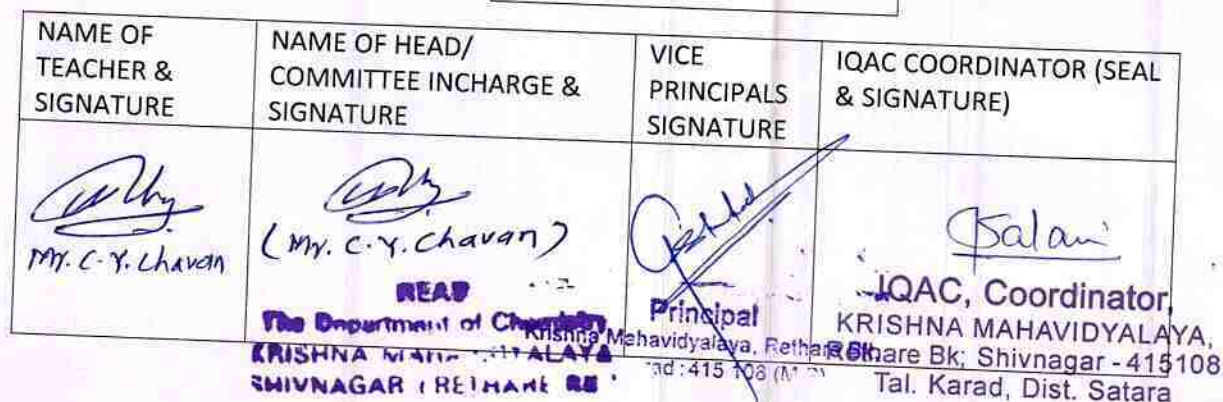 NAME OF
TEACHER &
SIGNATURE
NAME OF HEAD/
COMMITTEE INCHARGE &
SIGNATURE
VICE
PRINCIPALS
SIGNATURE
IQAC COORDINATOR (SEAL
& SIGNATURE)
Mr. C. Y. Chavan
(Mr. C. Y. Chavan)
The Department of
KRISHNA
SHIVNAGAR
Principal
Krishna Mahavidyalaya, Rethare
415 108
IQAC, Coordinator,
KRISHNA MAHAVIDYALAYA,
Rethare Bk; Shivnagar - 415108
Tal. Karad, Dist. Satara